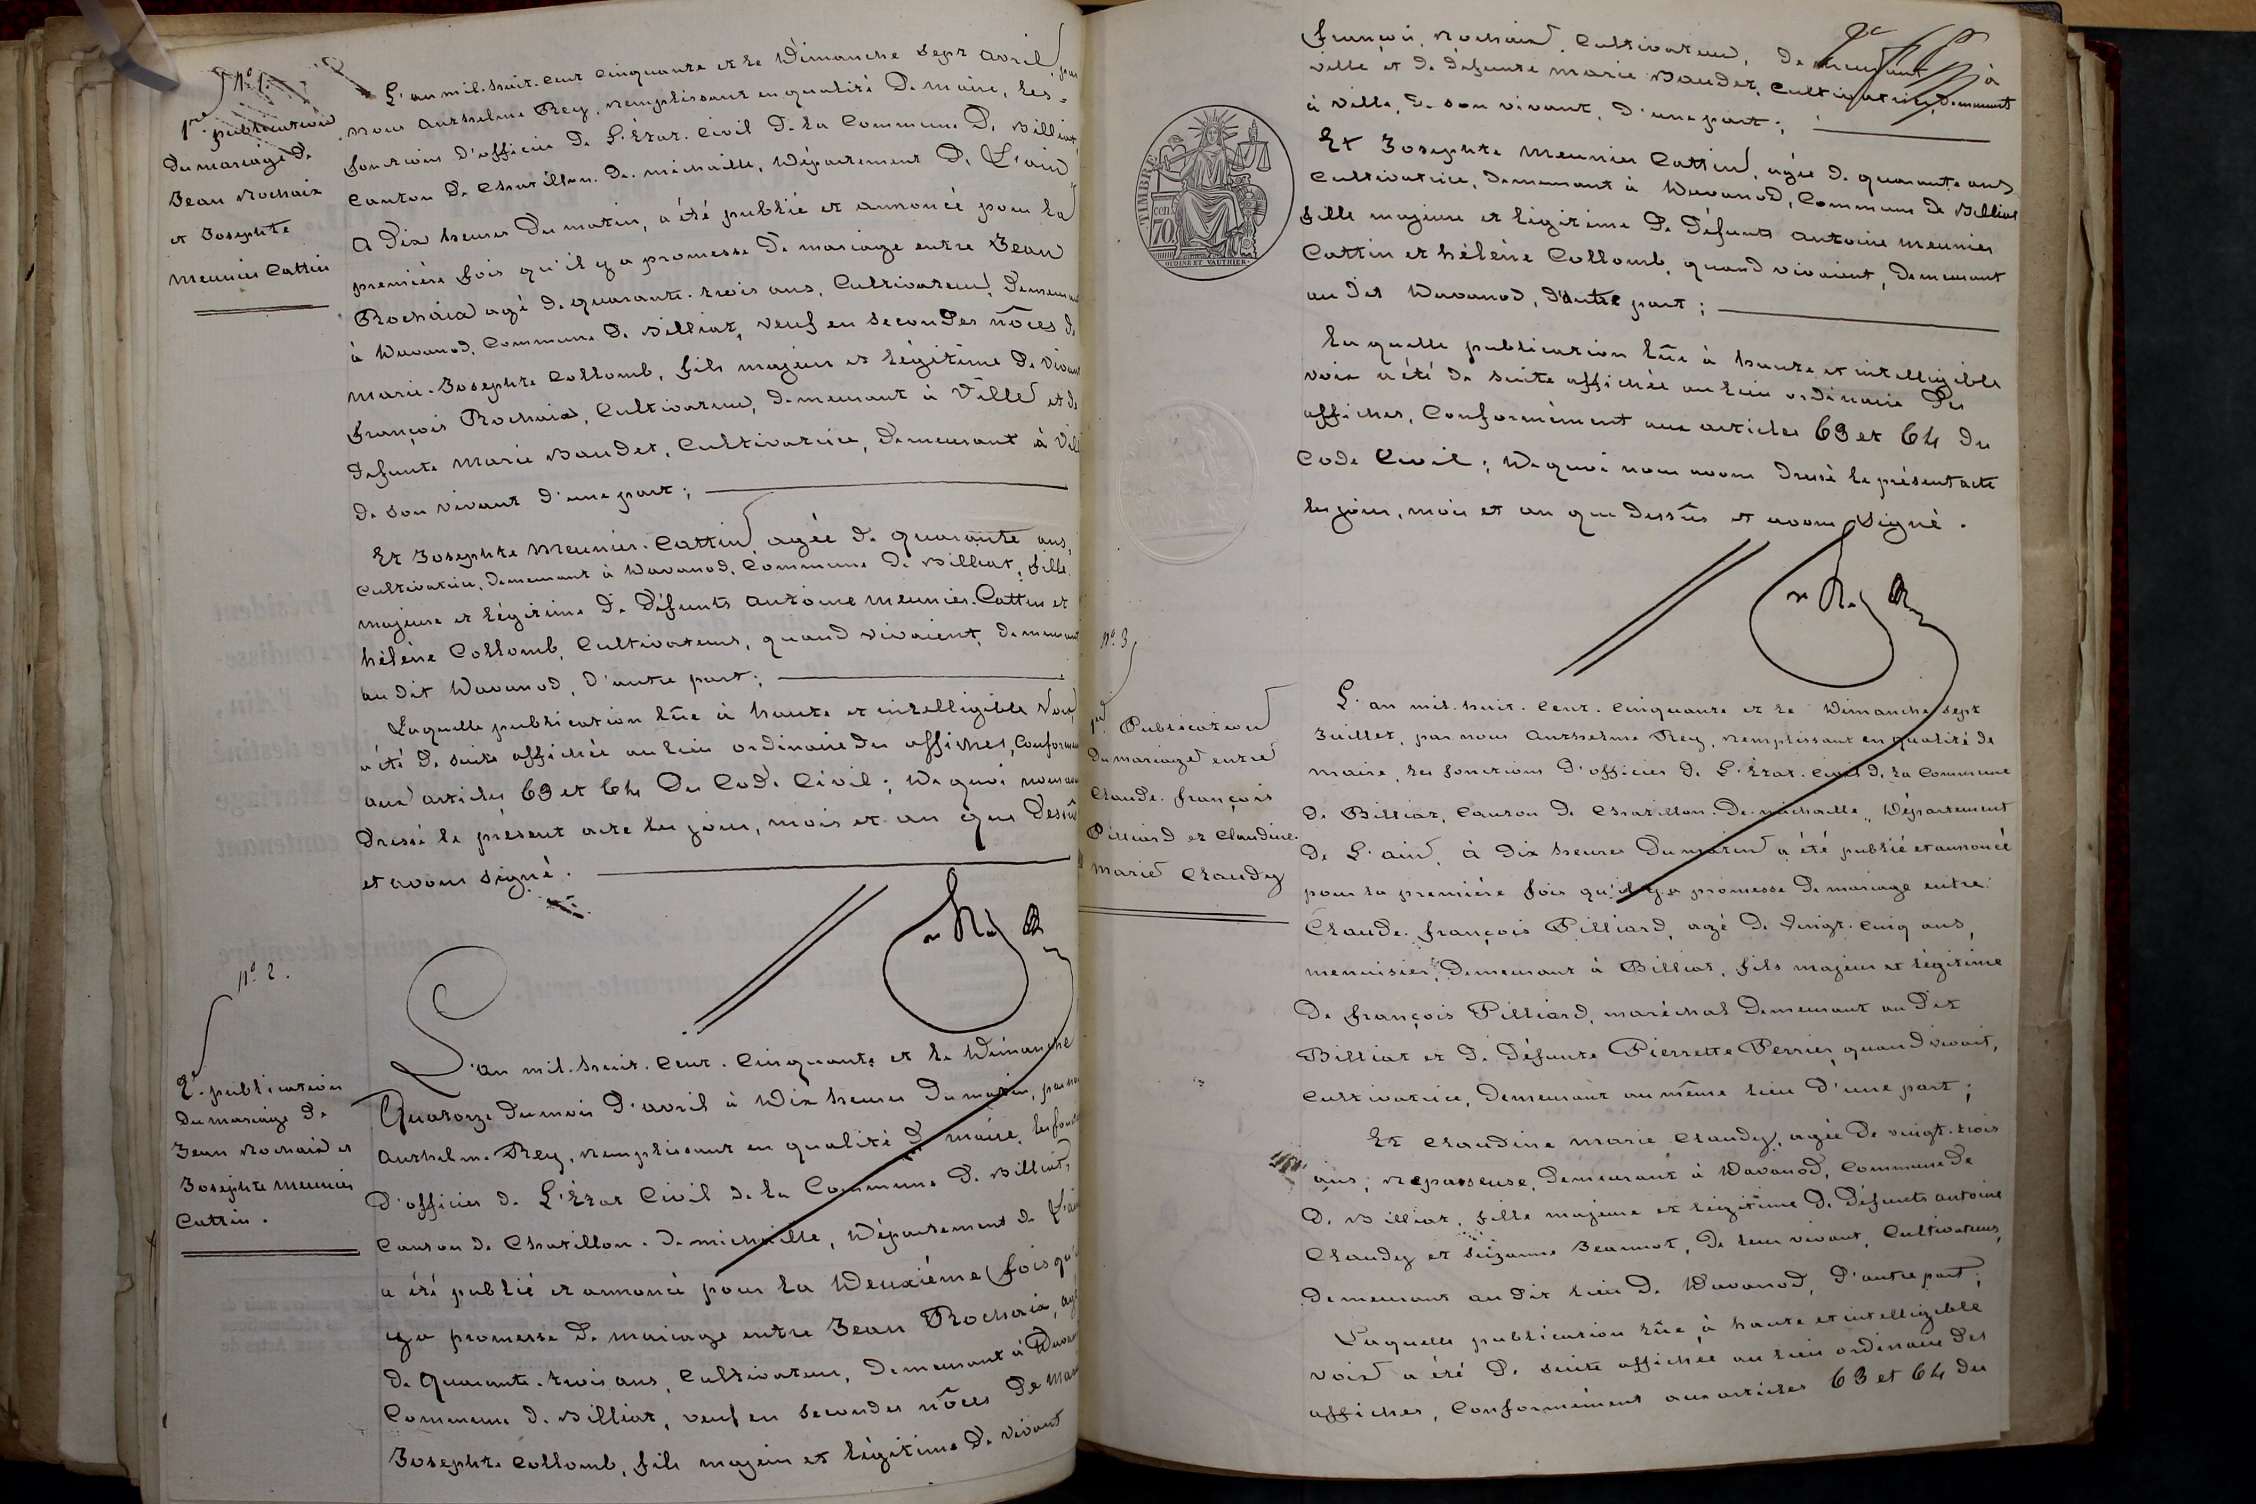 N.º 1.
1re publication
du mariage de
Jean Rochaix
et Josephte
Meunier Cattin
L'an mil-huit-cent cinquante et le Dimanche sept avril, par
nous Anthelme Rey, remplissant en qualité de maire, les
fonctions d'officier de l'État-civil de la Commune de Billiat
canton de Chatillon-de-michaille, Département de L'ain
A dix heures du matin, a été publié et annoncé pour la
première fois qu'il y a promesse de mariage entre Jean
Rochaix agé de quarante-trois ans, Cultivateur, demeurant
à Davanod, Commune de Billiat, veuf en secondes nôces de
Marie-Josephte Collomb, fils majeur et légitime de vivant
françois Rochaix, Cultivateur, demeurant à Ville et de
défunte Marie Baudet, Cultivatrice, demeurant à Ville
de son vivant d'une part;
Et Josephte Meunier-Cattin, agée de quarante ans,
cultivatrice, demeurant à Davanod, Commune de Billiat, fille
majeure et légitime de défunts antoine Meunier-Cattin et
hélène Collomb, Cultivateurs, quand vivaient, demeurant
au dit Davanod, d'autre part;
Laquelle publication lûe à haute et intelligible voix,
a été de suite affichée au lieu ordinaire des affiches, Conformément
aux articles 63 et 64 du Code Civil; De quoi nous avons
dressé le présent acte les jour, mois et an que dessûs
et avons signé.
N.º 2.
2e publication
du mariage de
Jean Rochaix et
Josephte Meunier
Cattin.
L'an mil-huit-cent-cinquante et le Dimanche
Quatorze du mois d'avril à Dix heures du matin, par nous
Anthelme Rey, remplissant en qualité de maire, les fonctions
d'officier de L'État Civil de la Commune de Billiat,
canton de Chatillon-de-michaille, Département de L'ain
a été publié et annoncé pour la Deuxième fois qu'il
y a promesse de mariage entre Jean Rochaix, agé
de Quarante-trois ans, Cultivateur, demeurant à Davanod
Commune de Billiat, veuf en secondes nôces de Marie
Josephte Collomb, fils majeur et légitime de vivant
françois Rochaix, Cultivateur, demeurant à
ville et de défunte Marie Baudet, Cultivatrice, demeurant
à ville, de son vivant, d'une part;
TIMBRE
cen.
70
OUDINÉ ET VAUTHIER
Et Josephte Meunier Cattin, agée de quarante ans
cultivatrice, demeurant à Davanod, Commune de Billiat
fille majeure et légitime de défunts antoine Meunier
Cattin et hélène Collomb, quand vivaient, demeurant
au dit Davanod, d'autre part;
Laquelle publication lûe à haute et intelligible
voix a été de suite affichée au lieu ordinaire des
affiches, Conformément aux articles 63 et 64 du
Code Civil; De quoi nous avons dressé le présent acte
les jour, mois et an que dessûs et avons signé.
N.º 3
1re Publication
du mariage entre
Claude-françois
Pilliard et Claudine-
Marie Chaudey
L'an mil-huit-cent-cinquante et le Dimanche sept
Juillet, par nous Anthelme Rey, remplissant en qualité de
maire, les fonctions d'officier de L'État-civil de la Commune
de Billiat, Canton de Chatillon-de-michaille, Département
de L'ain, à dix heures du matin a été publié et annoncé
pour la première fois qu'il y a promesse de mariage entre
Claude-françois Pilliard, agé de vingt-cinq ans,
menuisier, demeurant à Billiat, fils majeur et légitime
de françois Pilliard, maréchal demeurant au dit
Billiat et de défunte Pierrette Perrier, quand vivait,
cultivatrice, demeurant au même lieu d'une part;
Et Claudine Marie Chaudey, agée de vingt-trois
ans, repasseuse, demeurant à Davanod, Commune de
de Billiat, fille majeure et légitime de défunts antoine
Chaudey et Suzanne Jeannot, de leur vivant, Cultivateurs,
demeurant au dit lieu de Davanod, d'autre part;
Laquelle publication lûe à haute et intelligible
voix a été de suite affichée au lieu ordinaire des
affiches, Conformément aux articles 63 et 64 du